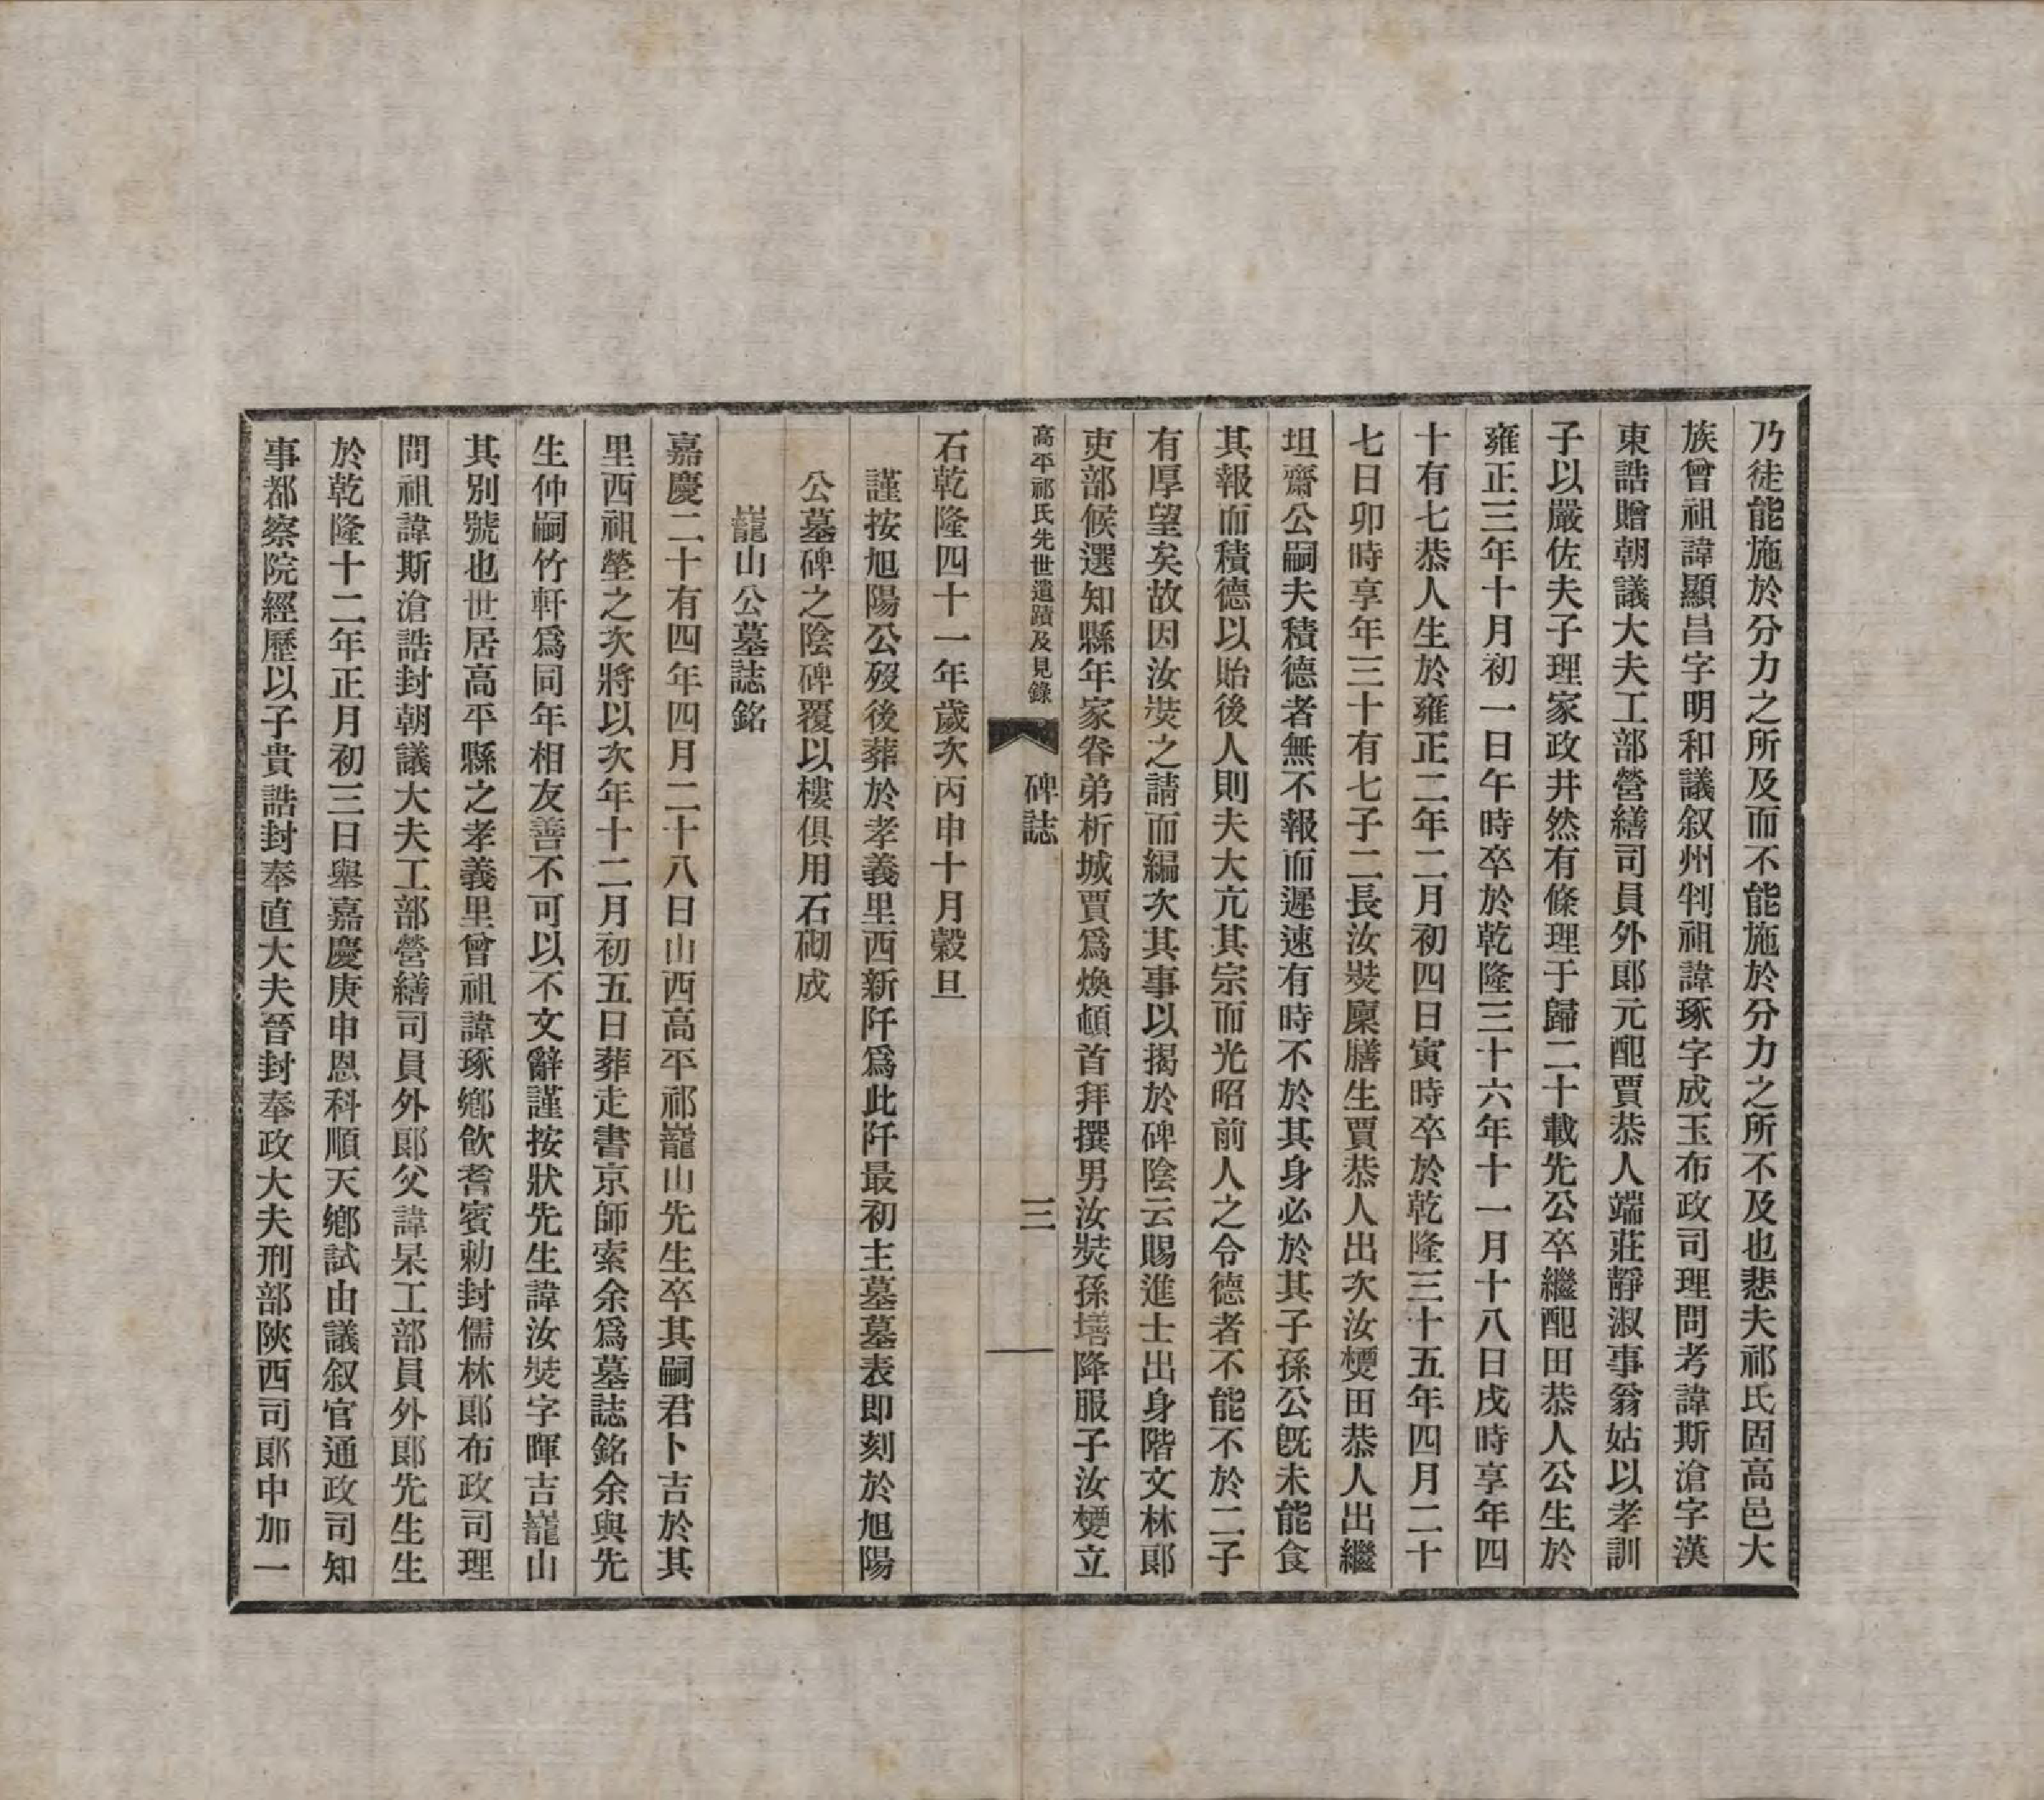 乃徒能施於分力之所及而不能施於分力之所不及也悲夫祁氏固高邑大
族曾祖諱顯昌字明和議叙州判祖諱琢字成玉布政司理問考諱斯滄字漢
東誥贈朝議大夫工部營繕司員外郎元配賈恭人端莊靜淑事翁姑以孝訓
子以嚴佐夫子理家政井然有條理于歸二十載先公卒繼配田恭人公生於
雍正三年十月初一日午時卒於乾隆三十六年十一月十八日戌時享年四
十有七恭人生於雍正二年二月初四日寅時卒於乾隆三十五年四月二十
七日卯時享年三十有七子二長汝㷳廩膳生賈恭人出次汝㷫田恭人出繼
坦齋公嗣夫積德者無不報而遲速有時不於其身必於其子孫公既未能食
其報而積德以貽後人則夫大亢其宗而光昭前人之令德者不能不於二子
有厚望矣故因汝㷳之請而編次其事以揭於碑陰云賜進士出身階文林郎
吏部候選知縣年家眷弟析城賈爲煥頓首拜撰男汝㷳孫墡降服子汝㷫立
高平祁氏先世遺蹟及見錄 碑誌 三
石乾隆四十一年歲次丙申十月穀旦
謹按旭陽公歿後葬於孝義里西新阡爲此阡最初主墓墓表即刻於旭陽
公墓碑之陰碑覆以樓俱用石砌成
巃山公墓誌銘
嘉慶二十有四年四月二十八日山西高平祁巃山先生卒其嗣君卜吉於其
里西祖塋之次將以次年十二月初五日葬走書京師索余爲墓誌銘余與先
生仲嗣竹軒爲同年相友善不可以不文辭謹按狀先生諱汝㷳字暉吉巃山
其別號也世居高平縣之孝義里曾祖諱琢鄉飲耆賓勅封儒林郎布政司理
問祖諱斯滄誥封朝議大夫工部營繕司員外郎父諱杲工部員外郎先生生
於乾隆十二年正月初三日舉嘉慶庚申恩科順天鄉試由議叙官通政司知
事都察院經歷以子貴誥封奉直大夫晉封奉政大夫刑部陝西司郎中加一